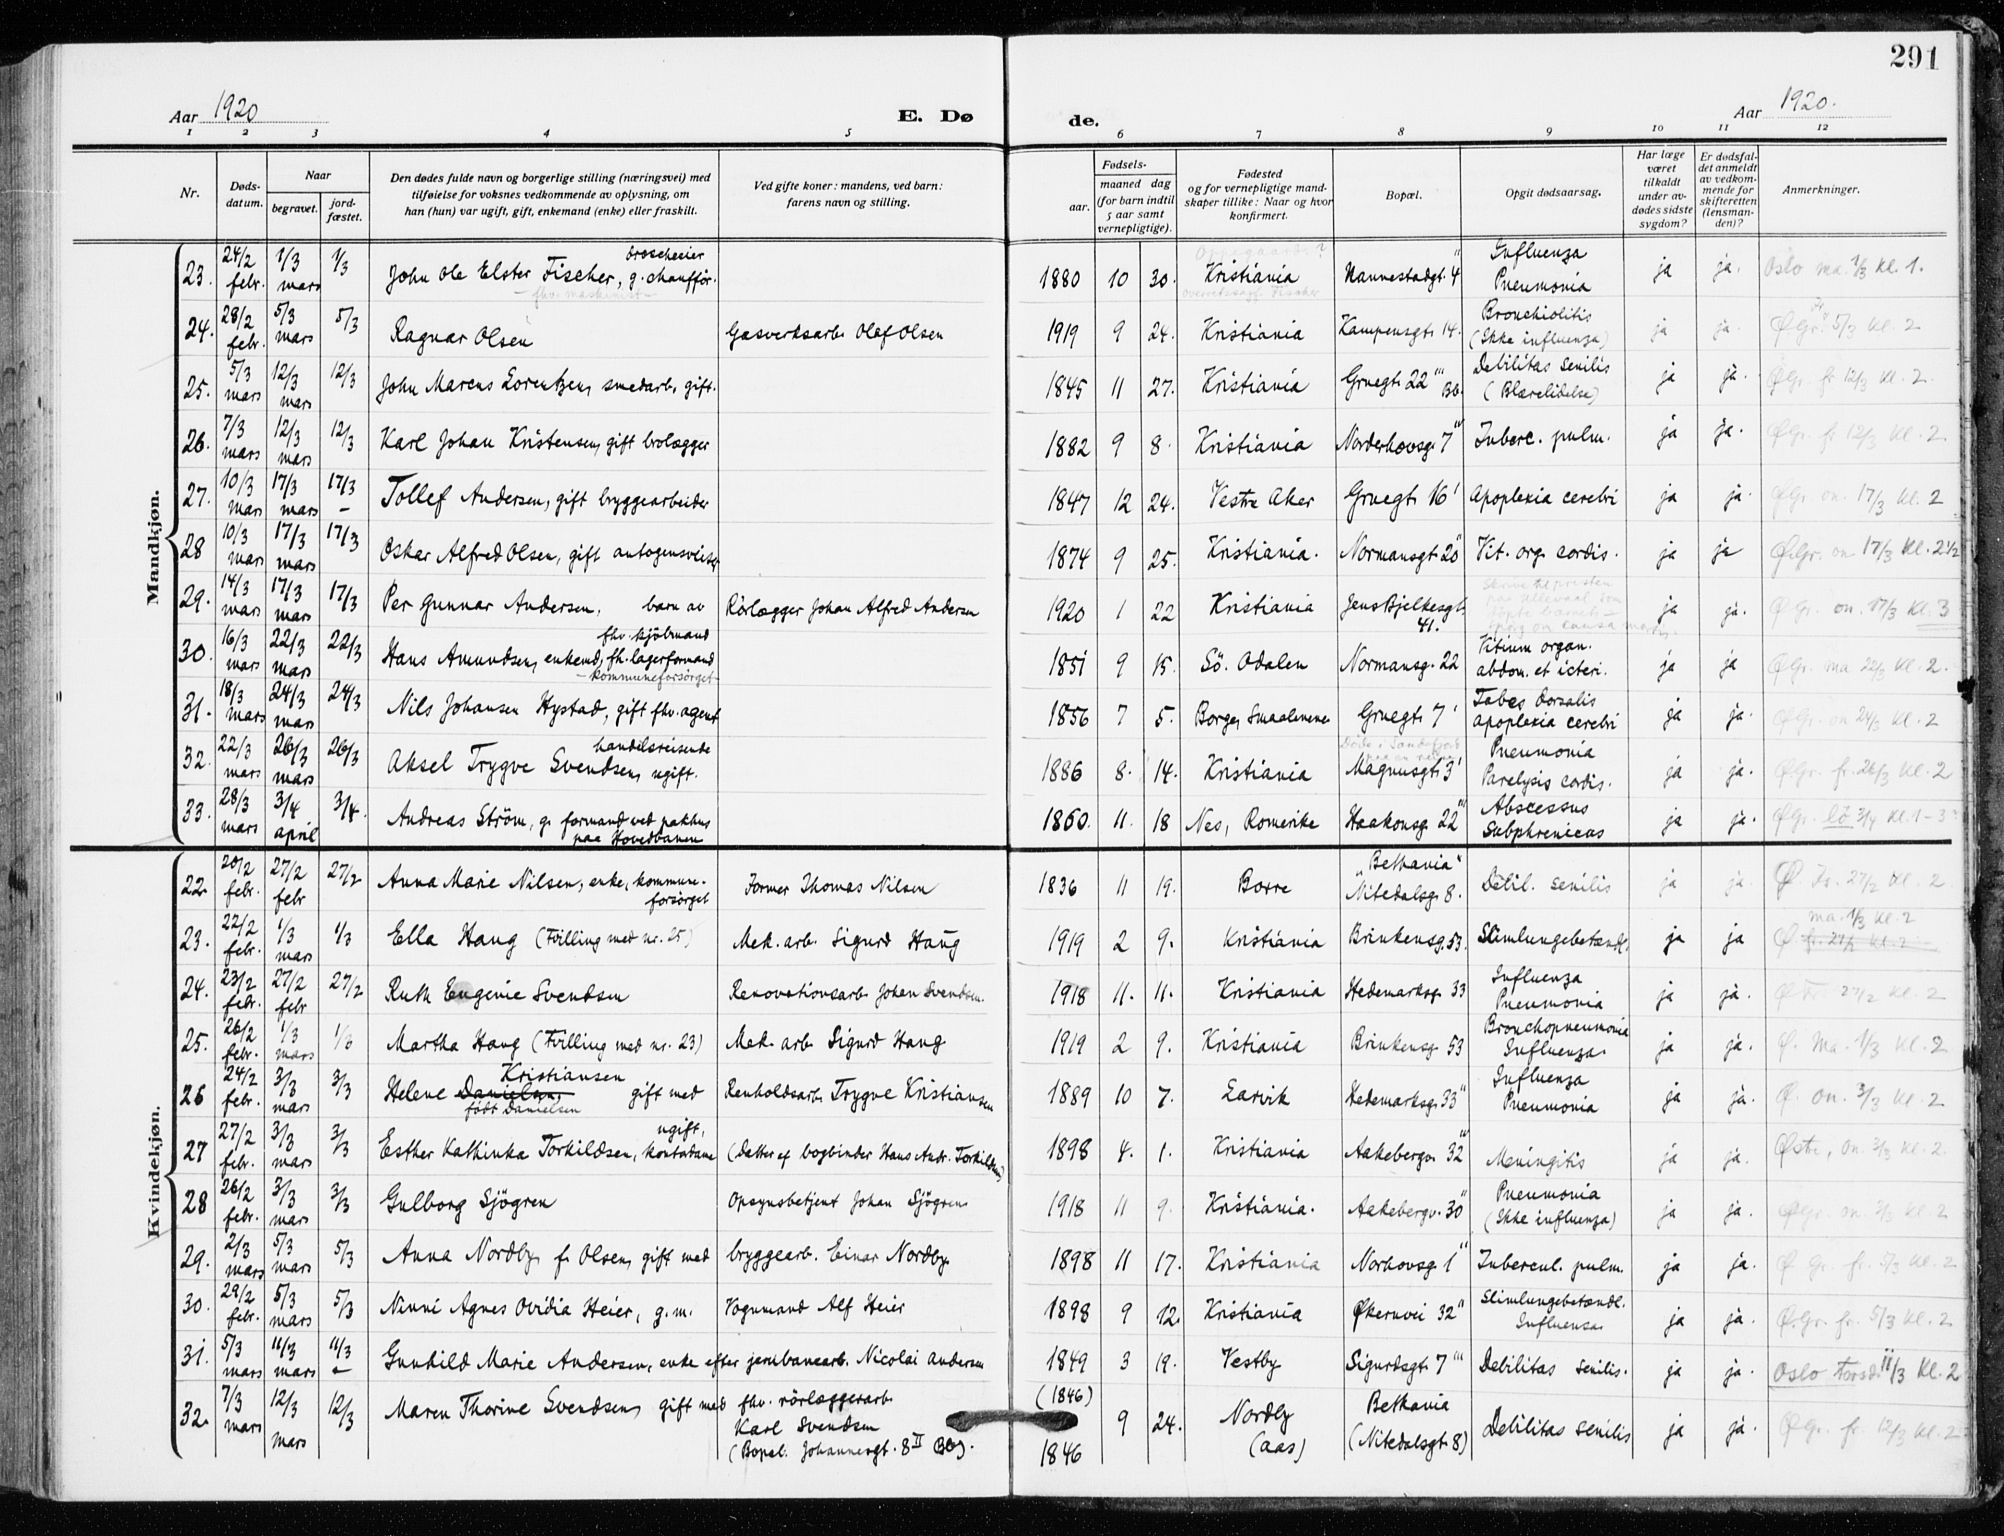 291
Aar 1920 E. Dø de. Aar 1920.
1 2 3 4 5 6 7 8 9 10 11 12
Nr. Døds-datum. Naar begravet. jord-fæstet. Den dødes fulde navn og borgerlige stilling (næringsvei) med tilføielse for voksnes vedkommende av oplysning, om han (hun) var ugift, gift, enkemand (enke) eller fraskilt. Ved gifte koner: mandens, ved barn: farens navn og stilling. Fødsels- aar. maaned dag (for barn indtil 5 aar samt vernepligtige). Fødested og for vernepligtige mandskaper tillike: Naar og hvor konfirmert. Bopæl. Opgit dødsaarsag. Har læge været tilkaldt under avdødes sidste sygdom? Er dødsfaldet anmeldt av vedkommende for skifteretten (lensmanden)? Anmerkninger.
Mandkjøn.
23. 24/2 febr. 1/3 mars 1/3 John Ole Elster Fischer, g. droscheeier chauffør. 1880 10 30. Kristiania Mannestadgt. 4" Influenza Pneumonia ja ja. Oslo ma. 1/3 kl. 1.
24. 28/2 febr. 5/3 mars 5/3 Ragnar Olsen Gasverksarb. Olaf Olsen 1919 9 24. Kristiania Kampensgt. 14. Bronchiolitis (Ikke influenza) ja ja. Ø.Gr. 5/3 kl. 2
25. 5/3 mars 12/3 mars 12/3 John Marcus Lorentzen, smedarb. gift. 1845 11 27. Kristiania Gruegt. 22''' Bb. Debilitas senilis (Blærelidelse) ja ja. Ø Gr. fr 12/3 kl. 2.
26. 7/3 mars 12/3 mars 12/3 Karl Johan Kristensen, gift brolægger 1882 9 8. Kristiania Norderhovsg. 7''' Tuberc. pulm. ja ja. Ø Gr. fr 12/3 kl. 2.
27. 10/3 mars 17/3 mars 17/3 – Tollef Andersen, gift bryggearbeider 1847 12 24. Vestre Aker Gruegt. 16' Apoplexia cerebri ja ja. Ø Gr. on. 17/3 kl. 2
28 10/3 mars 17/3 mars 17/3 Oskar Alfred Olsen, gift autogensveiser 1874 9 25. Kristiania. Normansgt. 20" Vit. org. cordis. ja ja Ø.Gr. on 17/3 kl. 2 1/2
29. 14/3 mars 17/3 mars 17/3 Per Gunnar Andersen, barn av Rørlægger Johan Alfred Andersen 1920 1 22 Kristiania Jens Bjelkesgt. 41. ja ja. Ø Gr. on. 17/3 kl. 3
30. 16/3 mars 22/3 mars 22/3 Hans Amundsen, enkemd, fhv. kjølmand fh. lagerformand – kommuneforsørget – 1851 9 15. Sø. Odalen Normansg. 22 Vitium organ. abdom. et icteri. ja ja Ø Gr. ma 22/3 kl. 2.
31. 18/3 mars 24/3 mars 24/3 Nils Johansen Hystad, gift fhv. agent 1856 7 5. Borge, Smaalenene Gruegt. 7' Tabes dorsalis apoplexia cerebri ja ja. Ø Gr. on 24/3 kl. 2
32. 22/3 mars 26/3 mars 26/3 Aksel Trygve Svendsen, handelsreisende ugift. 1886 8. 14. Kristiania Døde i Sandefjord paa en reise Magnusgt. 3' Pneumonia Paralysis cordis. ja ja. Ø Gr. fr. 26/3 kl. 2
33. 28/3 mars 3/4 april 3/4. Andreas Strøm, g. formand ved pakhus paa Hovedbanen 1860. 11. 18 Nes, Romerike Haakonsg. 22''' Abscessus Subphrenicus ja ja. Ø Gr. lö 3/4 kl. 1–3
Kvindekjøn.
22 20/2 febr. 27/2 febr 27/2 Anna Marie Nilsen, enke, kommune-forsørget Former Thomas Nilsen 1836 11 19. Borre "Bethania" Nitedalsg. 8. Debil. senilis ja ja Ø. Fr. 27/2 kl. 2
23. 22/2 febr. 1/3 mars 1/3 Ella Haug (Tvilling med nr. 25) Mek. arb. Sigurd Haug 1919 2 9. Kristiania Brinkensg. 53. Slimlungebetændl. ja ja ma. 1/3 kl. 2 Ø fr. 27/2 kl. 2
24. 23/2 febr. 27/2 febr 27/2 Ruth Eugenie Svendsen Renovationsarb. Johan Svendsen. 1918 11. 11. Kristiania Hedemarksg. 33 Influenza Pneumonia ja ja. Ø Fr. 27/2 kl. 2
25. 26/2 febr. 1/3 mars 1/3 Martha Haug (Tvilling med nr. 23) Mek. arb. Sigurd Haug 1919 2 9. Kristiania Brinkensg. 53 Bronchopneumonia Influenza ja ja. Ø. Ma. 1/3 kl. 2
26 24/2 febr. 3/3 mars 3/3 Helene Danielsen, Kristiansen født Danielsen gift med Renholdsarb. Trygve Kristiansen 1889 10 7. Larvik Hedemarksg. 33" Influenza Pneumonia ja ja. Ø. on. 3/3 kl. 2
27 27/2 febr. 3/3 mars 3/3 Esther Kathinka Torkildsen, ugift, kontordame (Datter af bogbinder Hans Andr. Torkildsen) 1898 4. 1. Kristiania Aakebergv. 32''' Meningitis ja ja. Østre, on. 3/3 kl. 2.
28 26/2 febr. 3/3 mars 3/3 Gulborg Sjögren Opsynsbetjent Johan Sjögren 1918 11 9. Kristiania. Aakebergv. 30" Pneumonia (Ikke influenza) ja ja. Ø Gr. on. 3/3 kl. 2
29. 2/3 mars 5/3 mars 5/3 Anna Nordby f. Olsen, gift med bryggearb. Einar Nordby. 1898 11 17. Kristiania Norhovsg. 1" Tubercul. pulm. ja ja. Ø Gr. fr. 5/3 kl. 2
30. 29/2 febr. 5/3 mars 5/3 Ninni Agnes Ovidia Heier, g. m. Vognmand Alf Heier 1898 9 12. Kristiania Økernvei 32" Slimlungebetændl. Influenza ja ja. Ø.Gr. fr. 5/3 kl. 2
31. 5/3 mars 11/3 mars 11/3 – Gunhild Marie Andersen, enke efter jernbanearb. Nicolai Andersen 1849 3 19. Vestby Sigurdsgt. 7''' Debilitas senilis. ja ja. Oslo Torsd. 11/3 kl. 2
32. 7/3 mars 12/3 mars 12/3 Maren Thorine Svendsen, gift med fhv. rörlæggerarb. Karl Svendsen (Bopel. Johannesgt. 8 II Bg). (1846) 1846 9 24. Nordby (Aas) Bethania (Nitedalsgt. 8) Debilitas senilis ja ja. Ø Gr. fr. 12/3 kl. 2